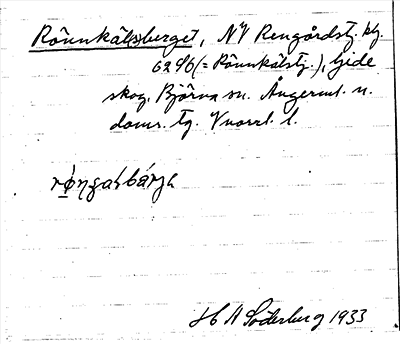 Rönnkäl(s)berget, NV Rengårdstj. kg.
6296 (= Rönnkälstj.), Gide
skog, Björna sn. Ångerml. n.
doms. tg. Vnorrl. l.
H A Söderberg 1933